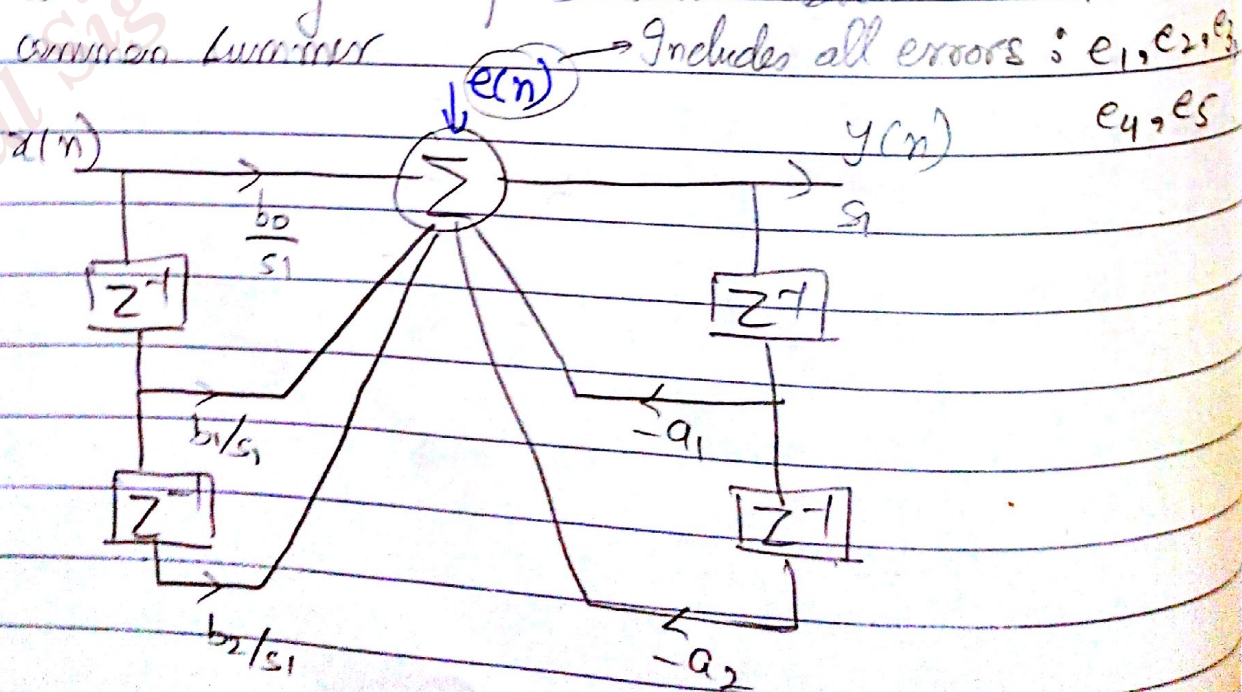 common summer
e(n) → Includes all errors : e1, e2, e3
e4, e5
x(n)
y(n)
Σ
b0
s1
s1
z-1
z-1
b1/s1
-a1
z-1
z-1
b2/s1
-a2